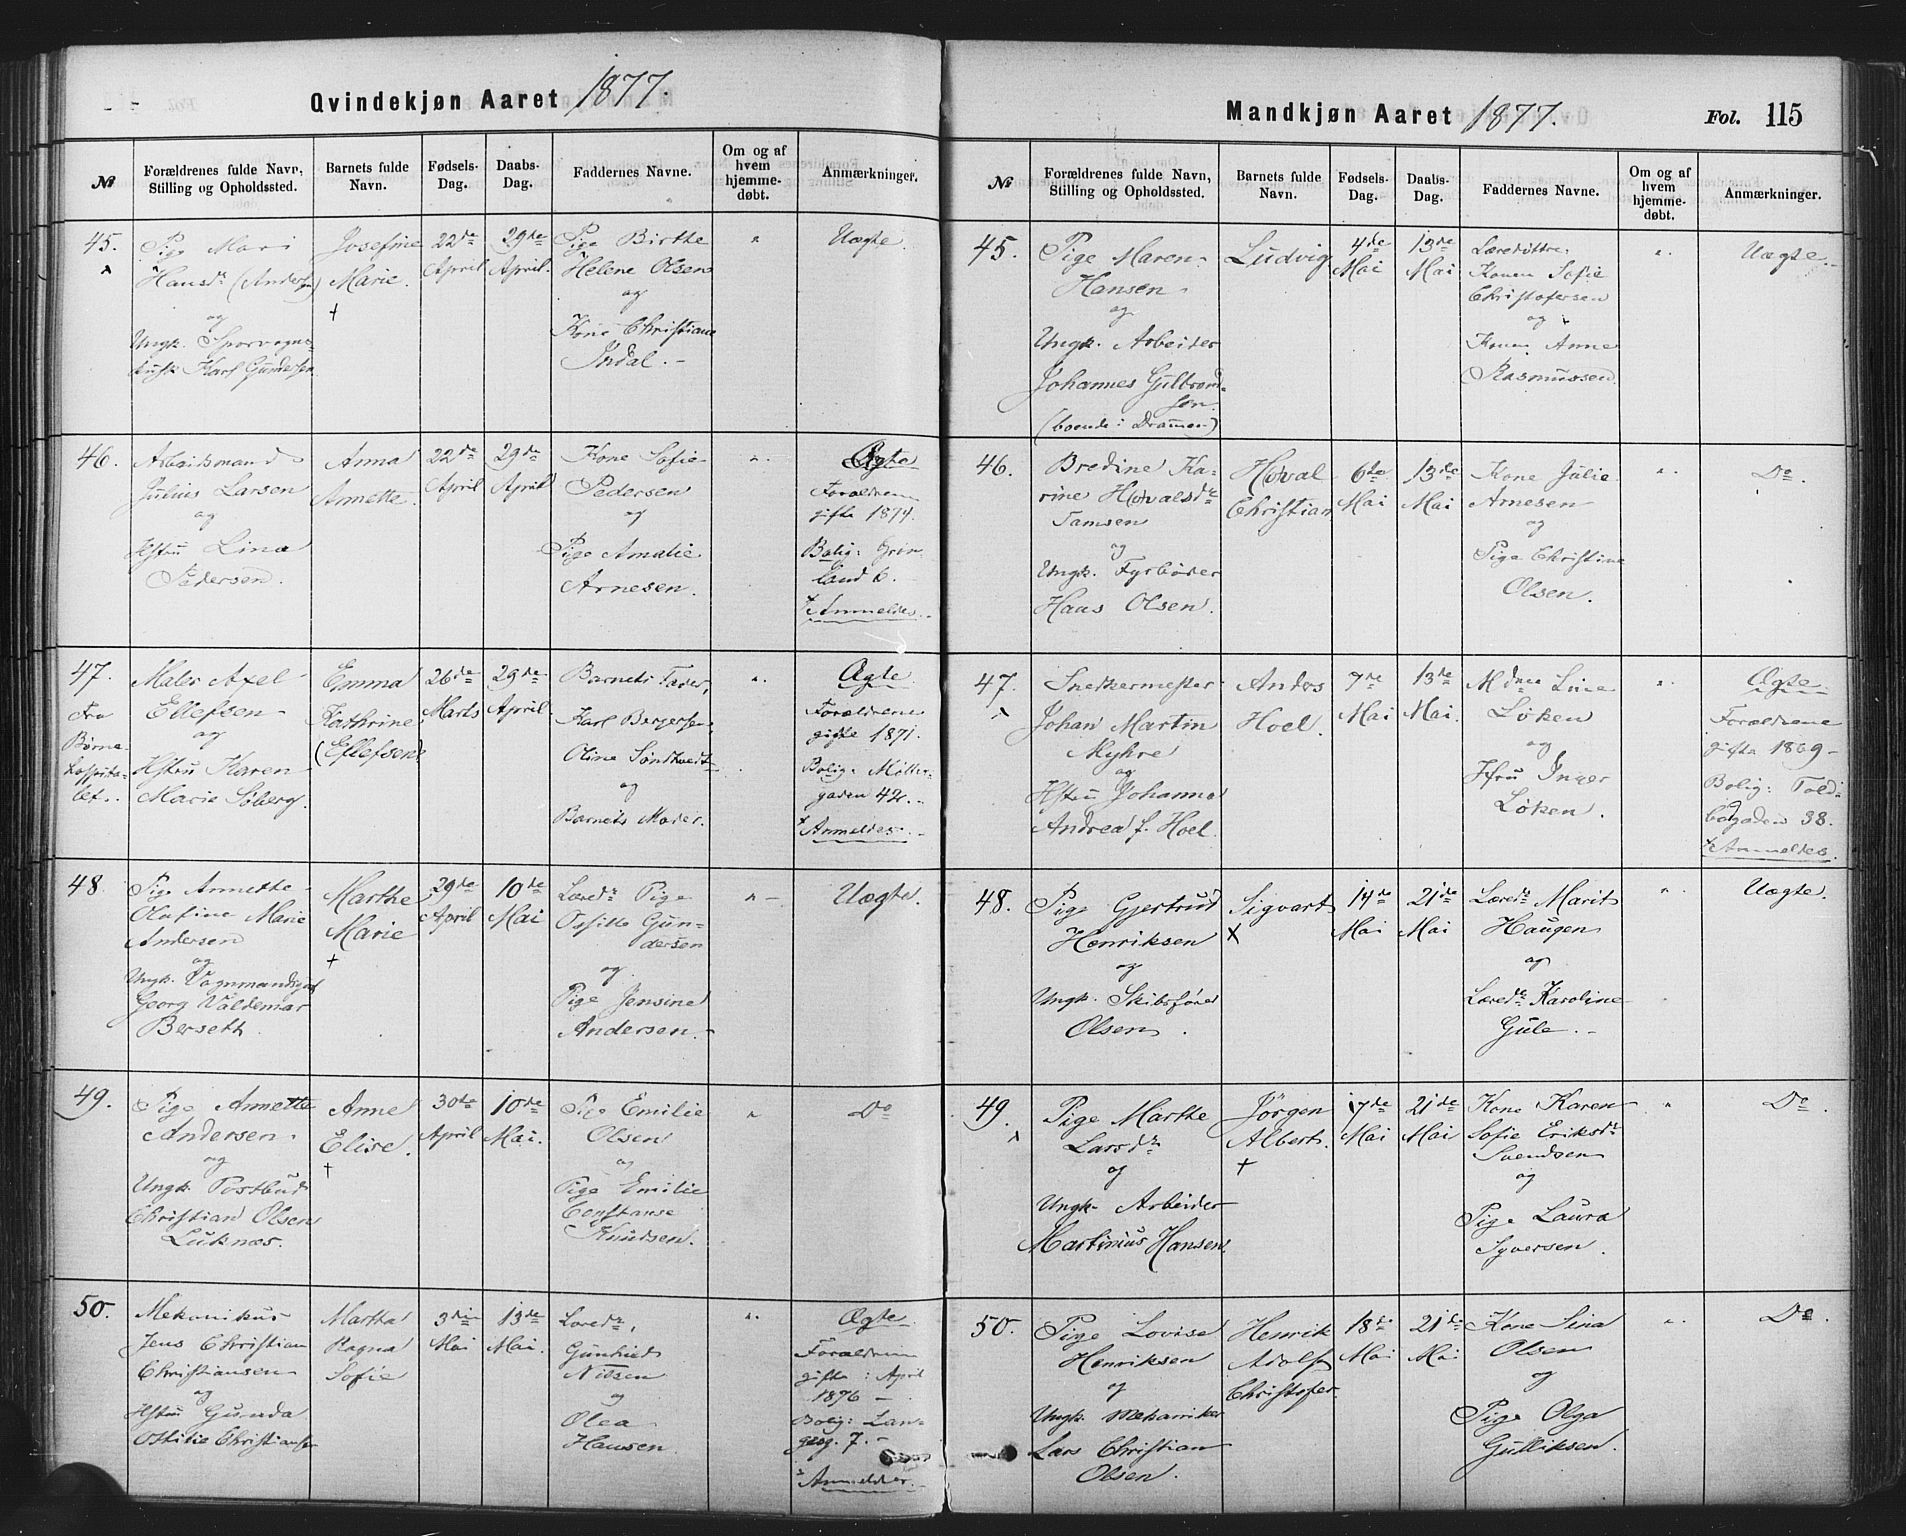 Qvindekjøn Aaret 1877.
№
Forældrenes fulde Navn,
Stilling og Opholdssted.
Barnets fulde
Navn.
Fødsels-
Dag.
Daabs-
Dag.
Faddernes Navne.
Om og af
hvem
hjemme-
døbt.
Anmærkninger.
45.
Pige Mari
Hansdr (Andersen)
og
Ungk. Sporvogns-
kusk Karl Gundersen
Josefine
Marie.
+
22de
April
29de
April.
Pige Birthe
Helene Olsen
og
Kone Christiane
Indal.-
"
Uægte.
46.
Arbeidsmand
Julius Larsen
og
Hstru Lina
Pedersen.
Anna
Annette.
22de
April
29de
April
Kone Sofie
Pedersen
og
Pige Amalie
Arnesen.
"
Ægte
Forældrene
gifte 1874.
Bolig: Grøn
land 6.
Anmeldes.
47.
Fra
Børne
hospita-
let.
Maler Axel
Ellefsen
og
Hstru Karen
Marie Søberg.
Emma
Kathrine
(Ellefsen)
26de
Marts
29de
April
Barnets Fader,
Karl Bergersen,
Oline Sundtvedt
og
Barnets Moder.
"
Ægte
Forældrene
gifte 1871.
Bolig: Møller-
gaden 42.
Anmeldes.
48.
Pige Annette
Olufine Marie
Andersen
og
Ungk. Vognmandsgut
Georg Valdemar
Berseth.
Marthe
Marie
+
29de
April
10de
Mai
Læredr Pige
Ossille Gun-
dersen
og
Pige Jensine
Andersen.-
"
Uægte.
49.
Pige Annette
Andersen.
og
Ungk. Postbud
Christian Olsen
Luknæs.
Anne
Elise.
+
30de
April
10de
Mai.
Pige Emilie
Olsen
og
Pige Emilie
Constanse
Knudsen.
"
Do
50.
Mekanikus
Jens Christian
Christiansen
og
Hstru Gunda
Ottilie Christiansen
Martha
Ragna
Sofie
3die
Mai
13de
Mai.
Læredr,
Gunhild
Nilsen
og
Olea
Hansen.
"
Ægte
Forældrene
gifte i April
1876 -
Bolig: Lan-
geg. 7.-
Anmeldes.
Mandkjøn Aaret 1877.
Fol. 115
№
Forældrenes fulde Navn,
Stilling og Opholdssted.
Barnets fulde
Navn.
Fødsels-
Dag.
Daabs-
Dag.
Faddernes Navne.
Om og af
hvem
hjemme-
døbt.
Anmærkninger.
45.
Pige Maren
Hansen
og
Ungk. Arbeider
Johannes Gulbrand-
sen.
(boende i Drammen)
Ludvig
4de
Mai
13de
Mai
Læredøttre
Konen Sofie
Christofersen
og
Konen Anne
Rasmussen
"
Uægte.
46.
Bredine Ka-
rine Hovalsdr
Tamsen
og
Ungk. Fyrbøder
Hans Olsen.
Hoval
Christian
6te
Mai
13de
Mai
Kone Julie
Arnesen
og
Pige Christine
Olsen.
"
Do.
47.
Snekkermester
Johan Martin
Myhre
og
Hstru Johanna
Andrea f. Hoel.
Anders
Hoel.
7de
Mai
13de
Mai.
Mdme Line
Løken
og
Hfru Inger
Løken.
"
Ægte
Forældrene
gifte 1869-
Bolig: Told-
bogaden 38.
Anmeldes.
48.
Pige Gjertrud
Henriksen
og
Ungk. Skibsfører
Olsen.
Sigvart
X
14de
Mai
21de
Mai
Læredr Marit
Haugen
og
Læredr Karoline
Gule.-
"
Uægte.
49.
Pige Marthe
Larsdr
og
Ungk. Arbeider
Martinius Hansen.
Jörgen
Albert.
+
17de
Mai
21de
Mai
Kone Karen
Sofie Eriksdr
Svendsen
og
Pige Laura
Syversen.
"
Do.
50.
Pige Lovise
Henriksen
og
Ungk. Mekaniker
Lars Christian
Olsen.
Henrik
Adolf
Christofer.
18de
Mai
21de
Mai
Kone Lina
Olsen
og
Pige Olga
Gulliksen.
"
Do.